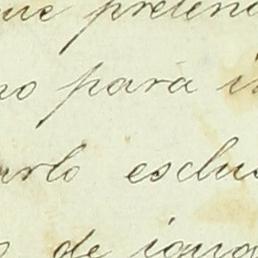 que preten
no para i
arlo esclus
o de igua